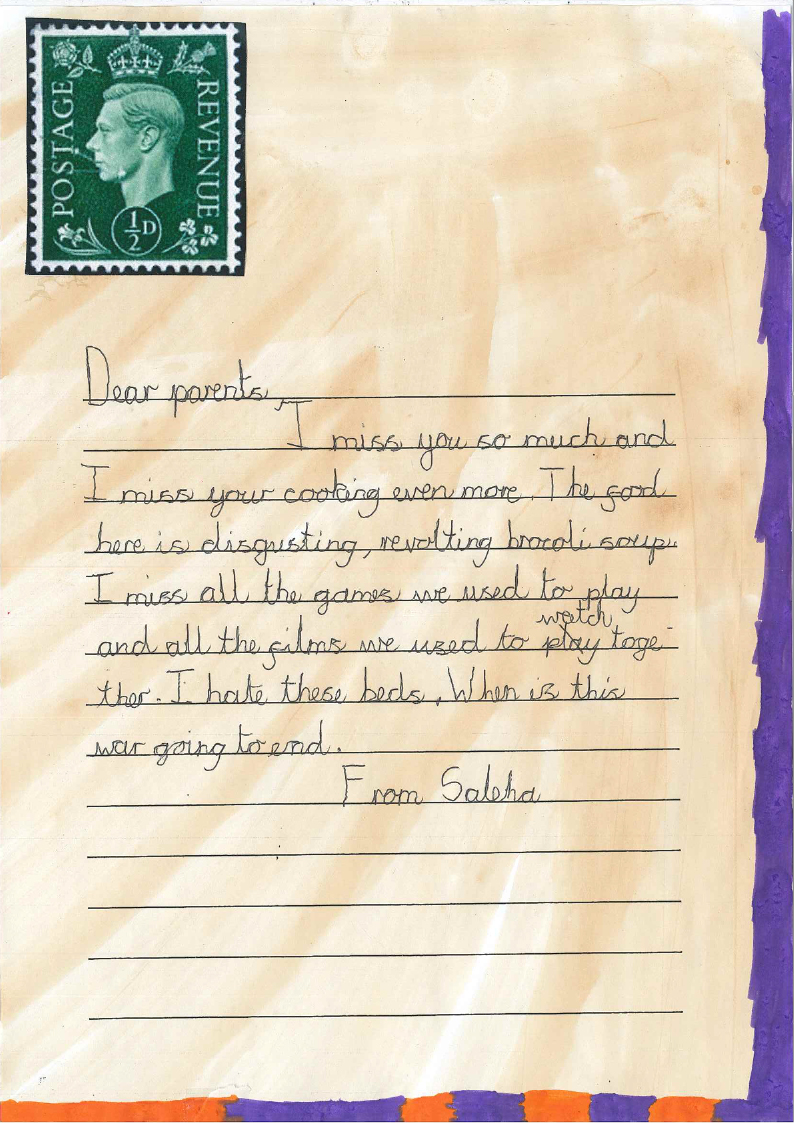 POSTAGE
REVENUE
½D
Dear parents,
I miss you so much and
I miss your cooking even more. The food
here is disgusting, revolting brocoli soup.
I miss all the games we used to play
watch
and all the films we used to play toge-
ther. I hate these beds. When is this
war going to end.
From Saleha